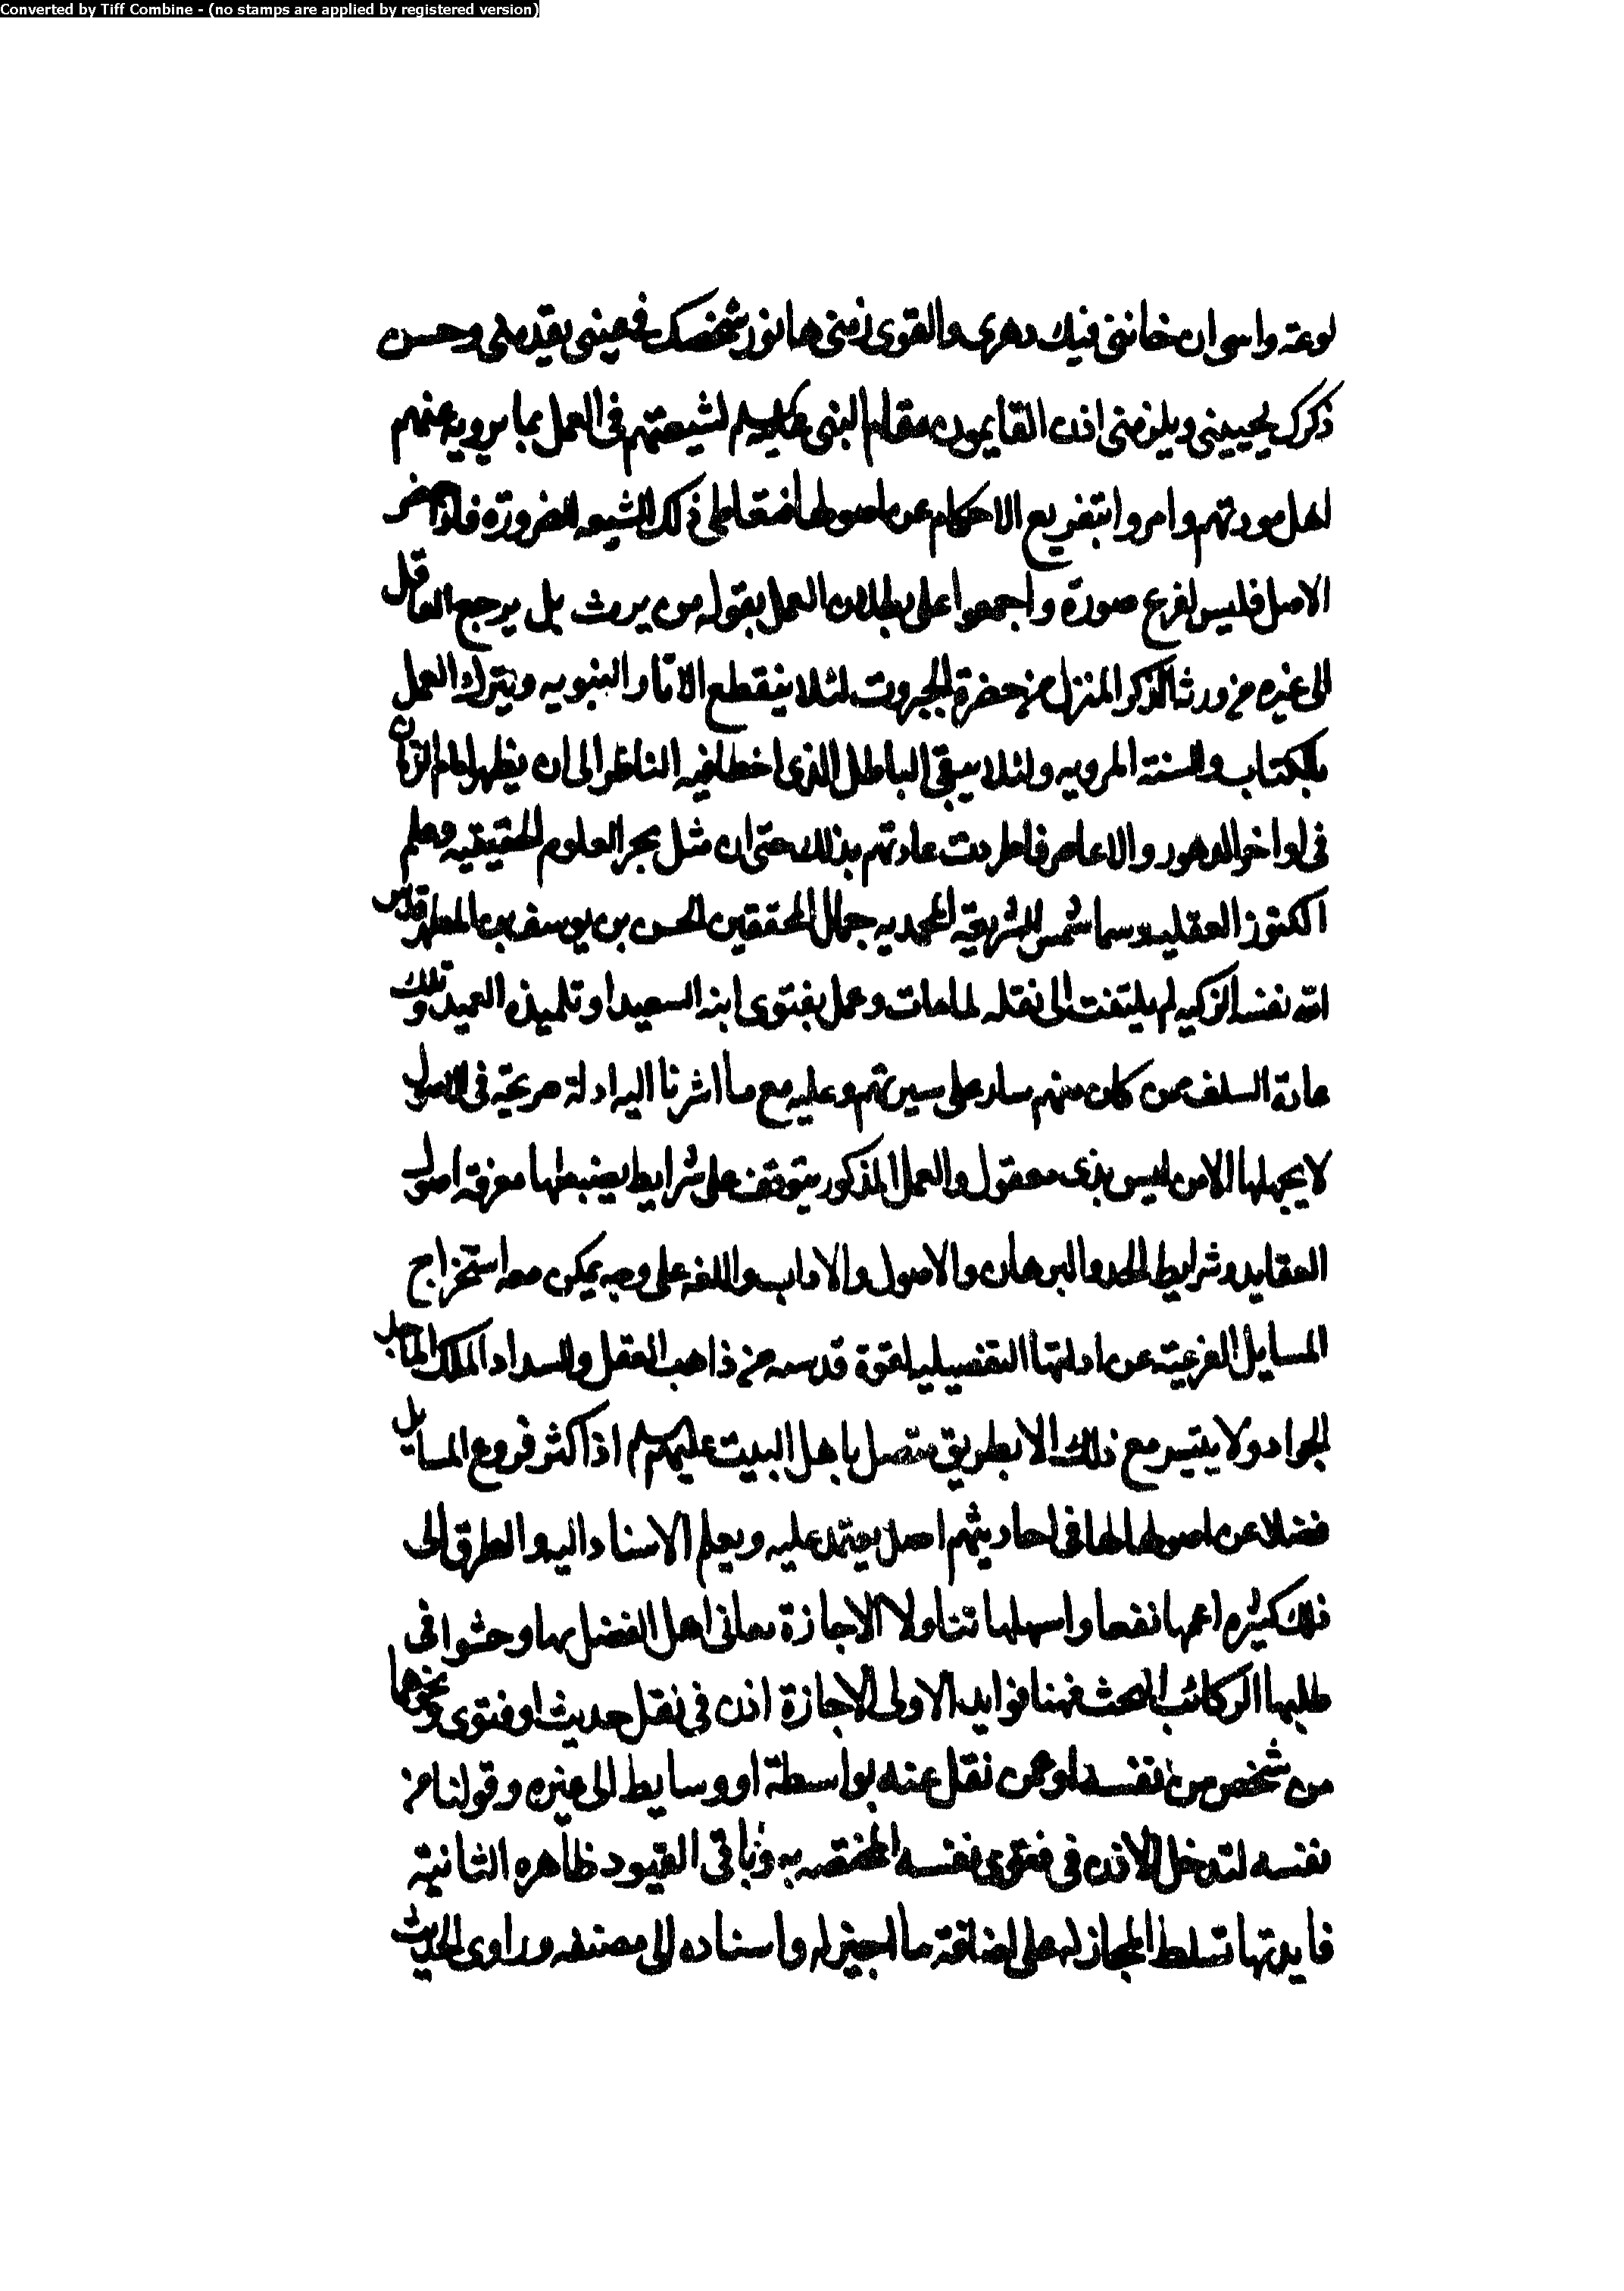 Converted by Tiff Combine - (no stamps are applied by registered version)
لوعة واسوان خاننى فيك دهرى والقوى زمنى ها نور شخصك فى عينى يقدمنى وحسن
ذكرك يحيينى ويلزمنى اذن القايمون مقام النبى عليه لشيعتهم فى العمل بما يرويه عنهم
اهل مودتهم وامروا بتفريع الاحكام عن اصولها فتعاطى ذلك الشيعه للضرورة فاذا
الاصل فليس لفرع صورة واجمعوا على بطلان العمل بقول من يرث بل يرجع العاقل
الى غيره من ورثة الذكر المنزل من حضرة الجبروت لئلا ينقطع الاثار النبويه ويترك العمل
بالكتاب والسنة المرويه ولئلا يبقى الباطل الذى اخطا فيه الناظر الى ان يظهر امام الزمان
فى اواخر الدهور والاعاصر فاطردت عادتهم بذلك حتى ان مثل بحر العلوم الحقيقيه ومعلم
الكنوز العقليه وسما شمس الشريعة المحمديه جمال المحققين الحسن بن يوسف بن المطهر قدس
الله نفسه الزكيه لم يلتفت الى نقله لما مات وعمل بفتوى ابنه السعيد او تلميذه العميد وتلك
عادة السلف ممن كان منهم سار على سيرتهم وعليه مع ما اشرنا اليه ادلة صريحة فى الاصول
لا يجهلها الا من ليس بذى معقول والعمل المذكور يتوقف على شرايط يضبطها معرفة اصول
العقايد وشرايط الحد والبرهان والاصول والاداب واللغه على وجه يمكن معه استخراج
المسايل الفرعيه عن ادلتها التفصيليه لقوة قدسيه من ذاهب العقل والسداد الملك الماجد
الجواد ولا يتيسر مع ذلك الا بطريق متصل باهل البيت عليهم اذ اكثر فروع المسايل
فضلا عن اصولها لها فى احاديثهم اصل يعتمد عليه ويعلم الاسناد اليه والطرق الى
ذلك كثيره اعمها نفعا واسهلها تناولا الاجازة تعانى اهل الفضل بها وحشوا فى
طلبها الركائب للبحث فهنا فوايد الاولى الاجازة اذن فى نقل حديث او فتوى ونحوها
من شخص من نفسه او عمن نقل عنه بواسطة او وسايط الى غيره وقولنا من
نفسه لتدخل الاذن فى فتوى نفسه المختصه به وباقى القيود ظاهره الثانية
فايدتها تسلط المجاز له على اضافة ما اجيز له واسناده الى مصنفه وراوى الحديث